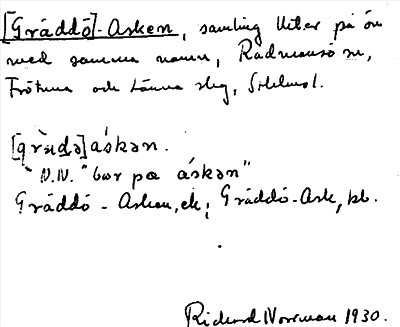 [Gräddö]-Asken, samling hus på ön
med samma namn, Rådmansö sn,
Frötuna och Länna skg, Sthlms l.
[grɛ̀də]áskən.
"N.N." bor på áskən"
Gräddö-Asken, ek; Gräddö-Ask, kb.
Richard Norrman 1930.